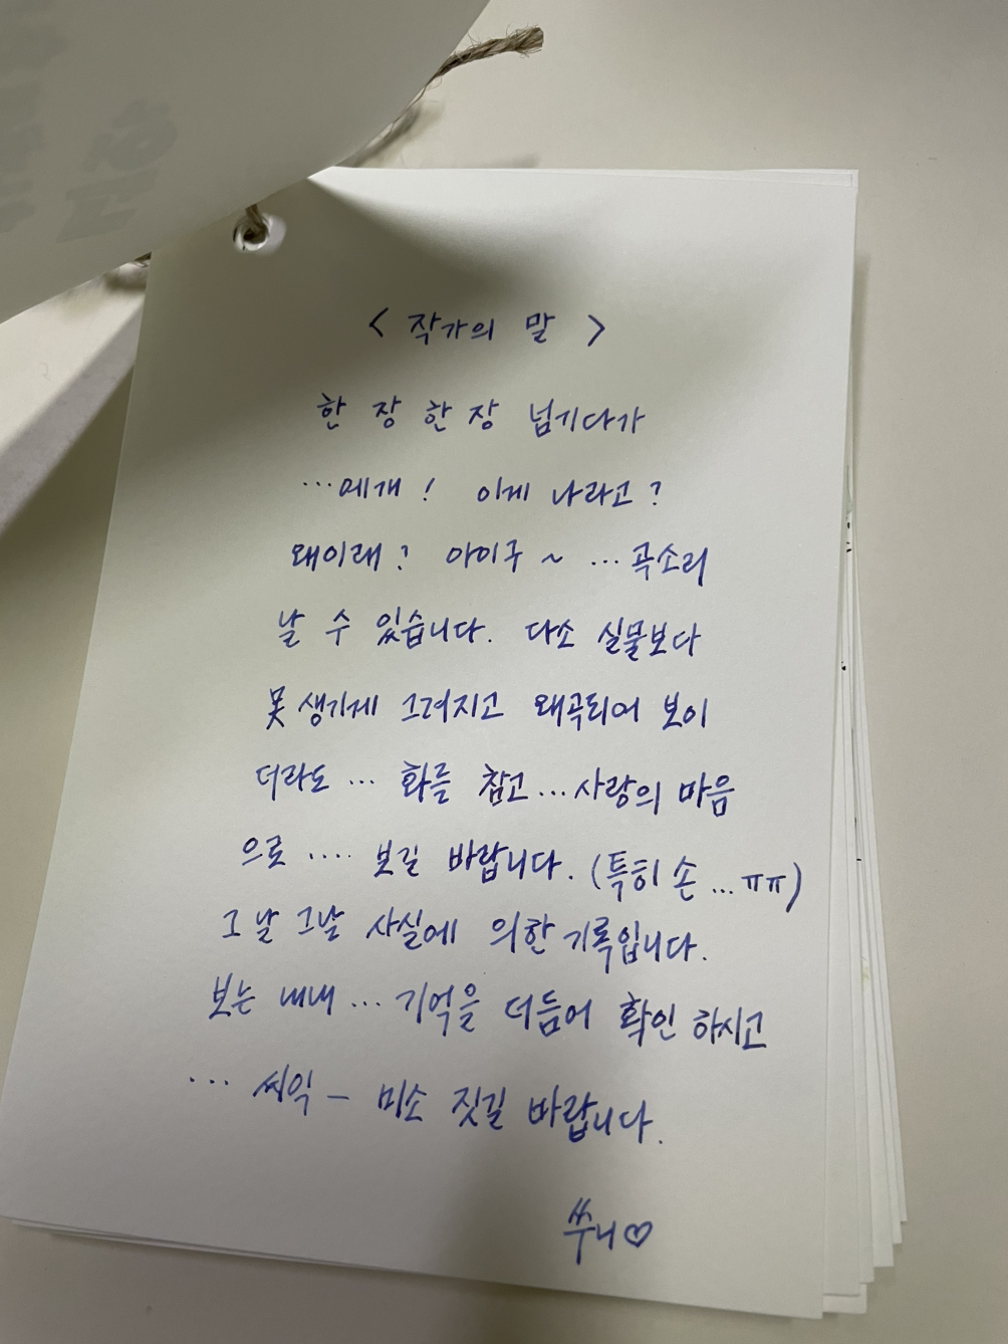 < 작가의 말 >
한 장 한 장 넘기다가
...에개! 이게 나라고?
왜이래? 아이구~ ...곡소리
날 수 있습니다. 다소 실물보다
못 생기게 그려지고 왜곡되어 보이
더라도 ... 화를 참고...사랑의 마음
으로 .... 보길 바랍니다. (특히 손 ...ㅠㅠ)
그날 그날 사실에 의한 기록입니다.
보는 내내 ... 기억을 더듬어 확인 하시고
... 씨익 - 미소 짓길 바랍니다.
쑤니♡